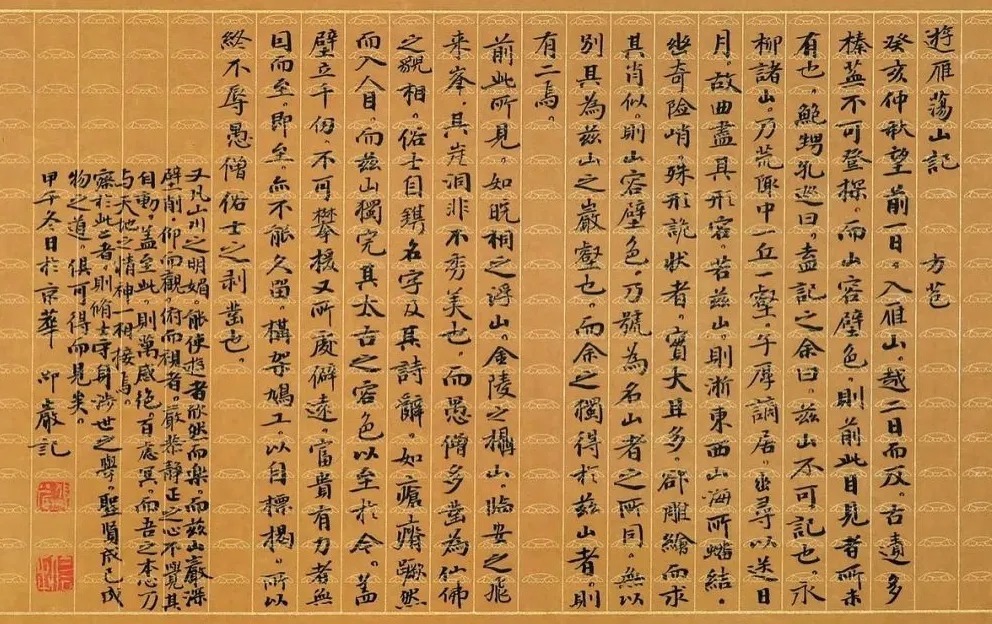 遊雁蕩山記 方苞
癸亥仲秋望前一日。入雁山。越二日而反。古蹟多
榛蕪不可登探。而山容壁色。則前此目見者所未
有也。鮑甥孔巡曰。盍記之。余曰。茲山不可記也。永
柳諸山。乃荒陬中一丘一壑。子厚謫居。幽尋以送日
月。故曲盡其形容。若茲山。則浙東西山海所蟠結。
幽奇險峭。殊形詭狀者。實大且多。欲雕繪而求
其肖似。則山容壁色。乃號為名山者之所同。無以
別其為茲山之巖壑也。而余之獨得於茲山者。則
有二焉。
前此所見。如皖桐之浮山。金陵之攝山。臨安之飛
来峯。其崖洞非不秀美也。而愚僧多鑿為仙佛
之貌相。俗士自鐫名字及其詩辭。如瘡痏蹶然
而入人目。而茲山獨完其太古之容色以至於今。蓋
壁立千仞。不可攀援。又所處僻遠。富貴有力者無
因而至。即至。亦不能久留。構架鳩工。以自標揭。所以
終不辱愚僧俗士之剥鑿也。
又凡山川之明媚。能使遊者欣然而樂。而茲山巖深
壁削。仰而觀。俯而視者。嚴恭靜正之心不覺其
自動。蓋至此。則萬感絶。百慮冥。而吾之本心乃
与天地之情神一相接焉。
察於此二者。則脩士守身涉世之學。聖賢成己成
物之道。俱可得而見矣。
甲子冬日於京華 巖記